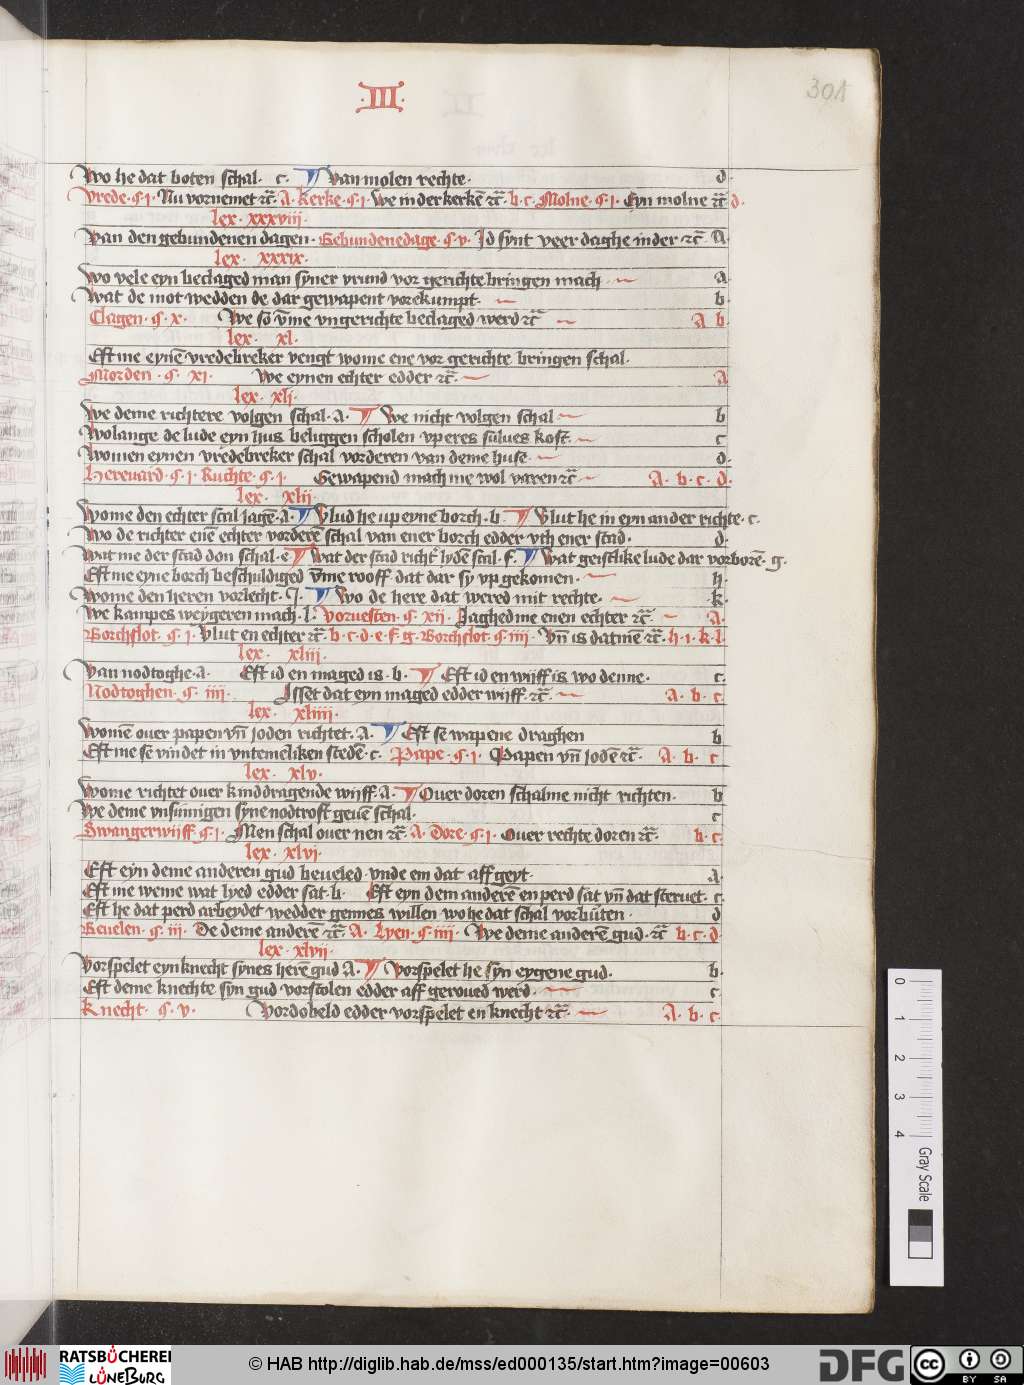 ·III·
301
Wo he dat boten schal · c · ¶ Van molen rechte · d ·
Vrede · §· j · Nu vornemet ⁊c̄ · A · Kerke · §· j · We in der kerkē ⁊c̄ · b · c · Molne · §· j · Eyn molne ⁊c̄ d ·
lex · xxxviij ·
Van den gebundenen dagen · Gebundenedage · §· v · Id synt veer daghe in der ⁊c̄ A ·
lex · xxxix ·
Wo vele eyn beclaged man syner vrund vor gerichte bringen mach a ·
Wat de mot wedden de dar gewapent vorekumpt · b ·
Clagen · §· x · We sō v̄me vngerichte beclaged werd ⁊c̄ A b ·
lex · xl ·
Eft me eynē vredebreker vengt wome ene vor gerichte bringen schal ·
Morden · §· xi · We eynen echter edder ⁊c̄ · A
lex · xli ·
We deme richtere volgen schal · a · ¶ We nicht volgen schal b
Wolange de lude eyn hus beliggen scholen vp eres sulues kost · c
Women eynen vredebreker schal vorderen van deme huse · d ·
Herevard · §· j · Ruchte · §· j · Gewapend mach me wol varen ⁊c̄ A · b · c · d ·
lex · xlij ·
Wome den echter scal jagē · a · ¶ Vlud he up eyne borch · b · ¶ Vlut he in eyn ander richte · c ·
Wo de richter enē echter vorderē schal van ener borch edder vth ener stad · d ·
Wat me der stad don schal · e ¶ Wat der stad richt lydē scal · f · ¶ Wat geistlike lude dar vorborē · g ·
Eft me eyne borch beschuldiged v̄me rooff dat dar sy vp gekomen · h ·
Wome den heren vorlecht · J · ¶ Wo de here dat wered mit rechte · k ·
We kampes weygeren mach · l · Vorvesten · §· xij · Jaghed me enen echter ⁊c̄ · a ·
Borchslot · §· j · Vlut en echter ⁊c̄ · b · c · d · e · f · g · Borchslot · §· iij · Vn̄ is dat mē ⁊c̄ · h · i · k · l
lex · xliij ·
Van nodtoghe · a · Eft id en maged is · b · ¶ Eft id en wijff is wo denne · c ·
Nodtoghen · §· iiij · Isset dat eyn maged edder wijff ⁊c̄ · A · b · c ·
lex · xliiij ·
Womē over papen vn̄ joden richtet · A · ¶ Eft se wapene draghen b
Eft me se vindet in vntemeliken stedē · c · Pape · §· j · Papen vn̄ jodē ⁊c̄ · A · b · c
lex · xlv ·
Wome richtet over kinddragende wijff · A · ¶ Over doren schalme nicht richten · b
We deme vnsinnigen syne nodtroft gevē schal · c
Swangerwijff §· j · Men schal over nen ⁊c̄ A · Dore · §· j · Over rechte doren ⁊c̄ · b · c ·
lex · xlvi ·
Eft eyn deme anderen gud beveled · vnde em dat aff geyt · a ·
Eft me weme wat lyed edder sat · b · Eft eyn dem anderē en perd sat vn̄ dat stervet · c ·
Eft he dat perd arbeydet wedder gennes willen wo he dat schal vorbuten · d
Bevelen · §· iij · De deme anderē ⁊c̄ A · Lyen · §· iiij · We deme anderē gud · ⁊c̄ b · c · d
lex · xlvij ·
Vorspelet eyn knecht synes herē gud A · ¶ Vorspelet he syn eygene gud · b ·
Eft deme knechte syn gud vorstolen edder aff geroved werd · c ·
Knecht · §· v · Vordobeld edder vorspelet en knecht ⁊c̄ · A · b · c ·
0 1 2 3 4 Gray Scale
RATSBÜCHEREI LÜNEBURG
© HAB http://diglib.hab.de/mss/ed000135/start.htm?image=00603
DFG
cc BY SA